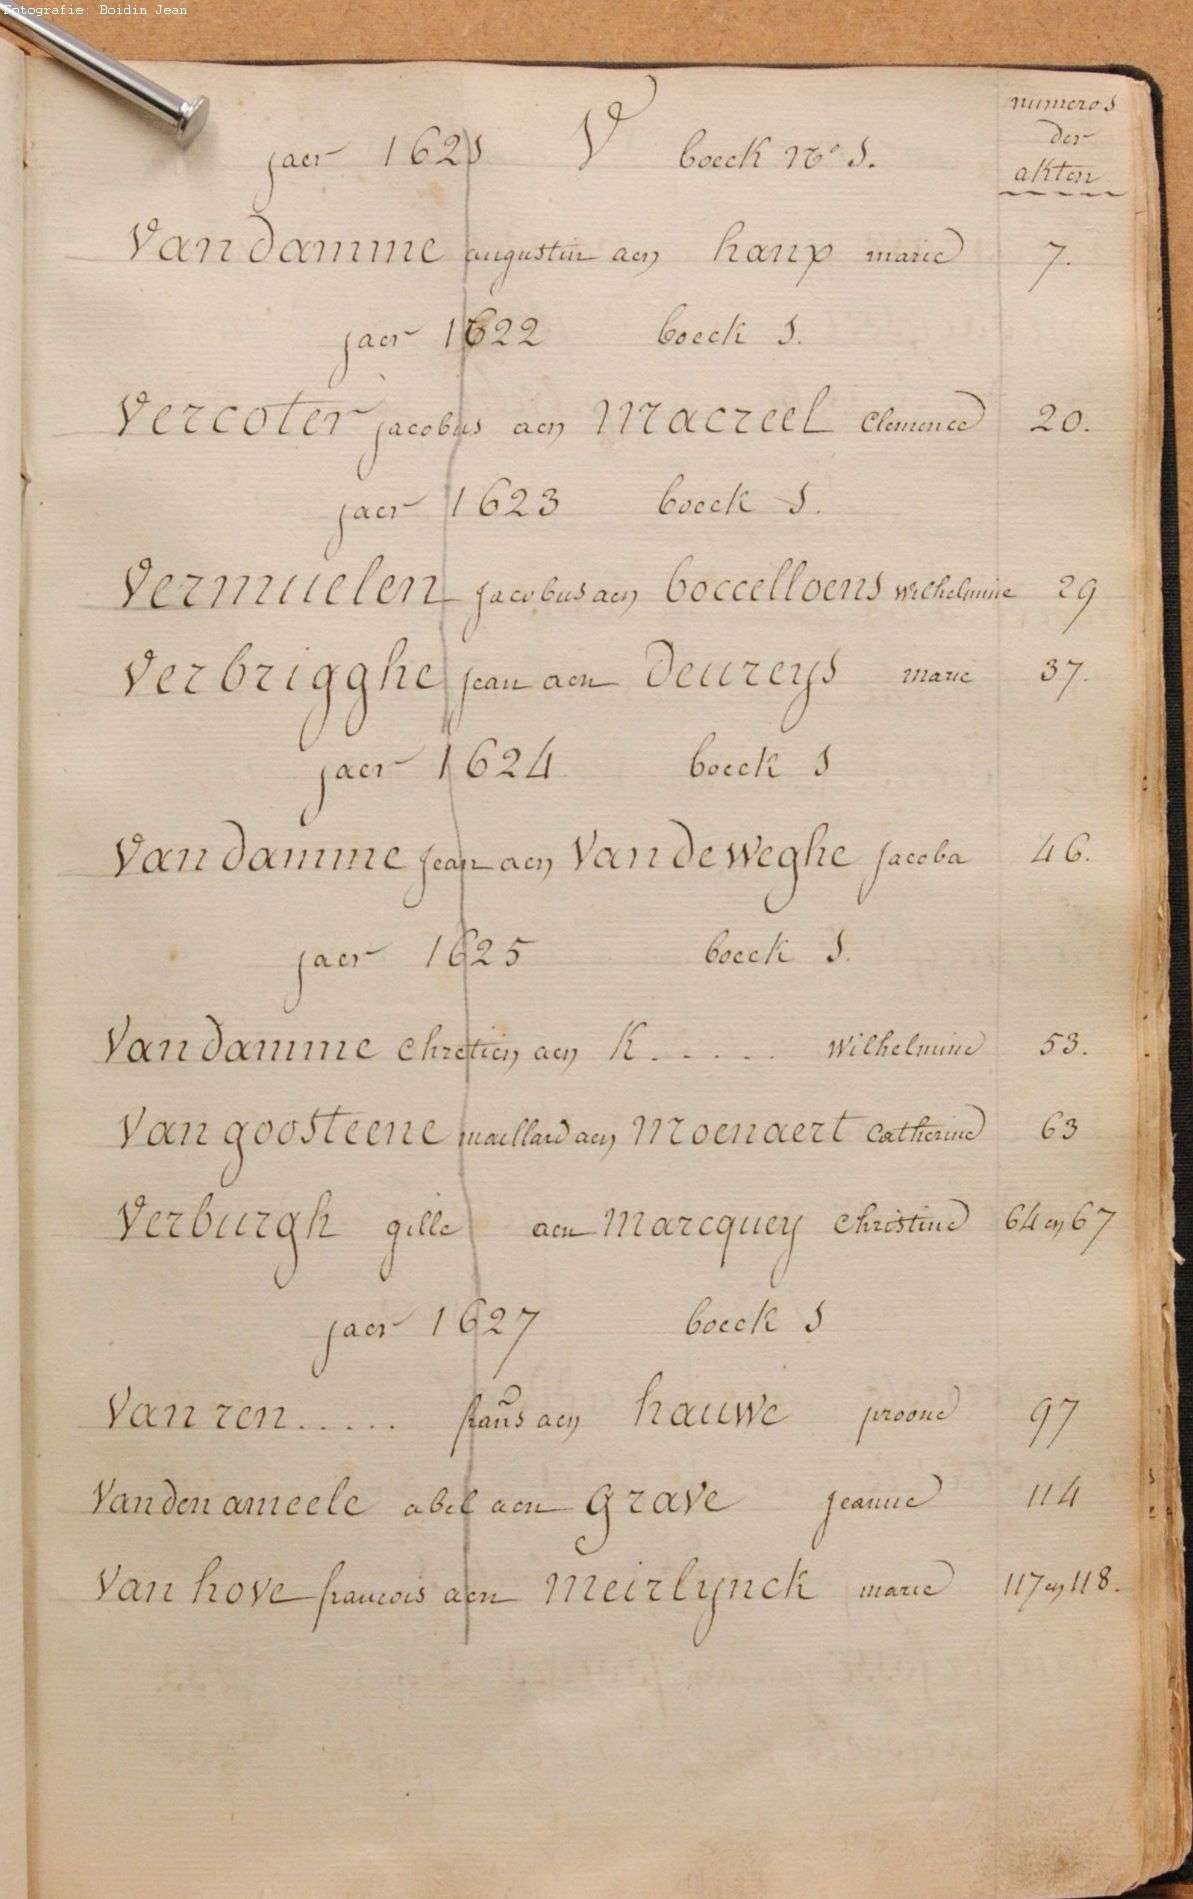 Fotografie: Boidin Jean
numeros
der
akten
jaer 1621 V boeck No 1.
Van damme augustin aen hanx marie 7.
jaer 1622 boeck 1.
Vercoter jacobus aen Macreel Clemence 20.
jaer 1623 boeck 1.
Vermuelen jacobus aen boccelloens wilhelmine 29
Verbrigghe jean aen deureys marie 37.
jaer 1624 boeck 1
Van damme jean aen Van de Weghe jacoba 46.
jaer 1625 boeck 1.
Van damme chretien aen K..... Wilhelmine 53.
Van goosteene maillard aen Moenaert Catherine 63
Verburgh gille aen Marcquey Christine 64 en 67
jaer 1627 boeck 1
Van ren..... frans aen hauwe proone 97
Van den ameele abel aen grave jeanne 114
Van hove francois aen Meirlynck marie 117 en 118.